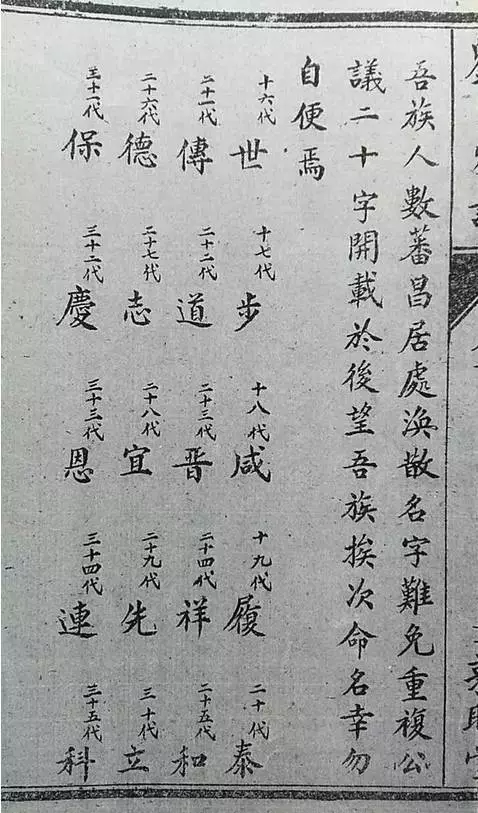 吾族人數蕃昌居處渙散名字難免重複公
議二十字開載於後望吾族挨次命名幸勿
自便焉
十六代 世 十七代 步 十八代 咸 十九代 履 二十代 泰
二十一代 傳 二十二代 道 二十三代 晋 二十四代 祥 二十五代 和
二十六代 德 二十七代 志 二十八代 宜 二十九代 先 三十代 立
三十一代 保 三十二代 慶 三十三代 恩 三十四代 連 三十五代 科